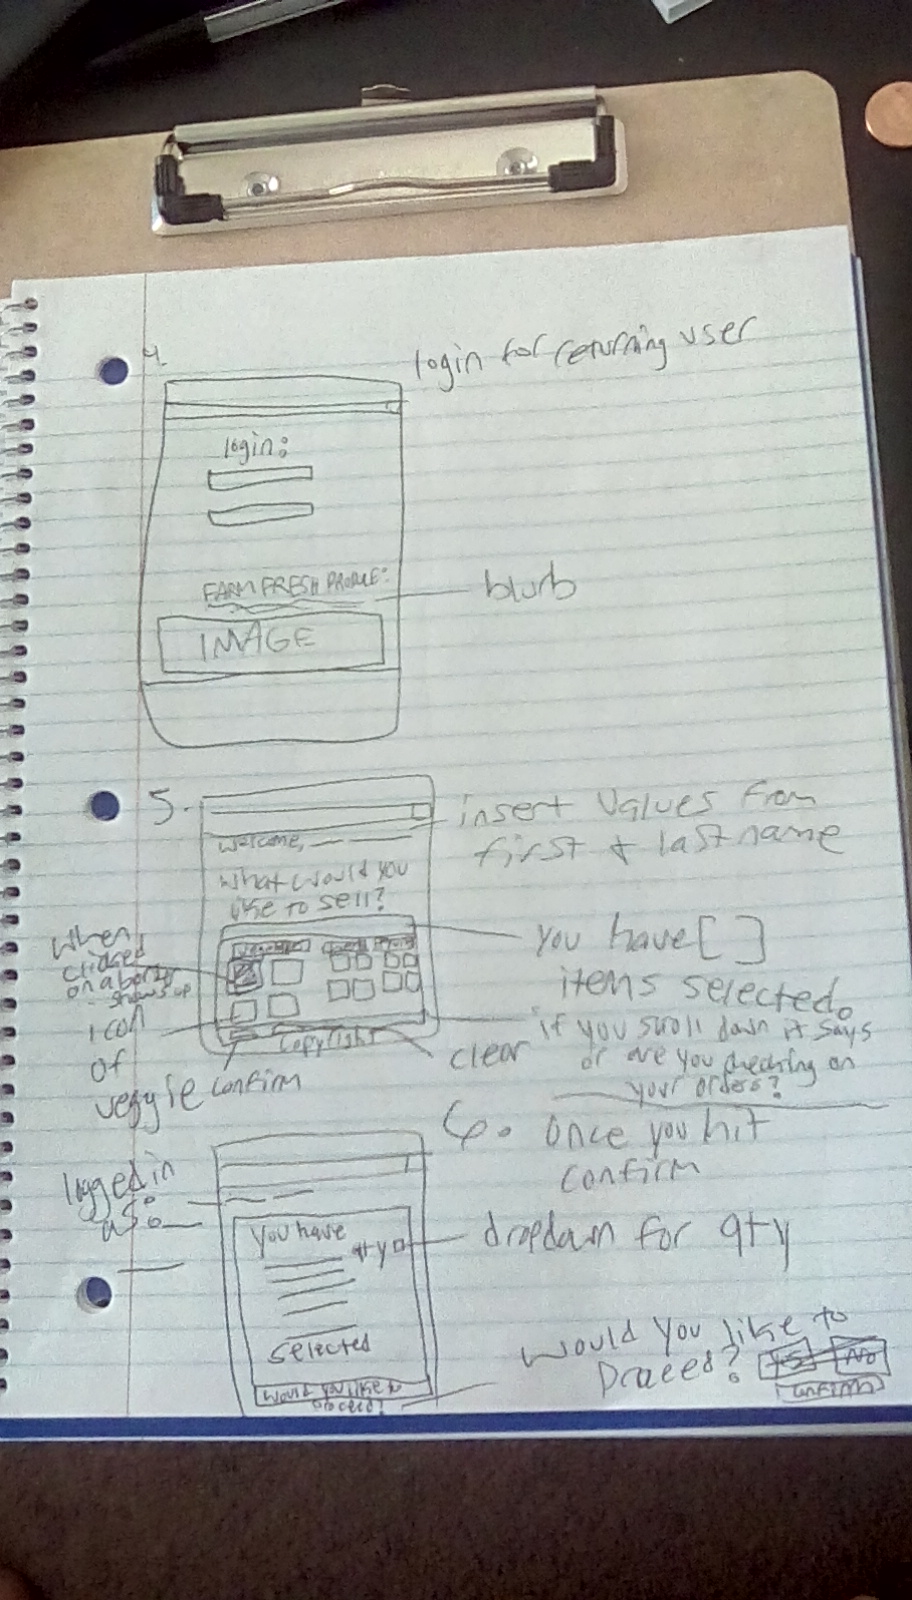 4.
login for returning user
login:
FARM FRESH PRODUCE:
blurb
IMAGE
5.
insert values from
first & last name
Welcome,
What would you
like to sell?
You have [ ]
items selected.
When
clicked
on a box
shows up
icon
of
veggie
confirm
Copyright
clear
if you scroll down it says
or are you checking on
your orders?
6. Once you hit
confirm
logged in
as:
You have
qty
dropdown for qty
selected
Would you like to
proceed?
Would you like to
proceed?
No
Confirm